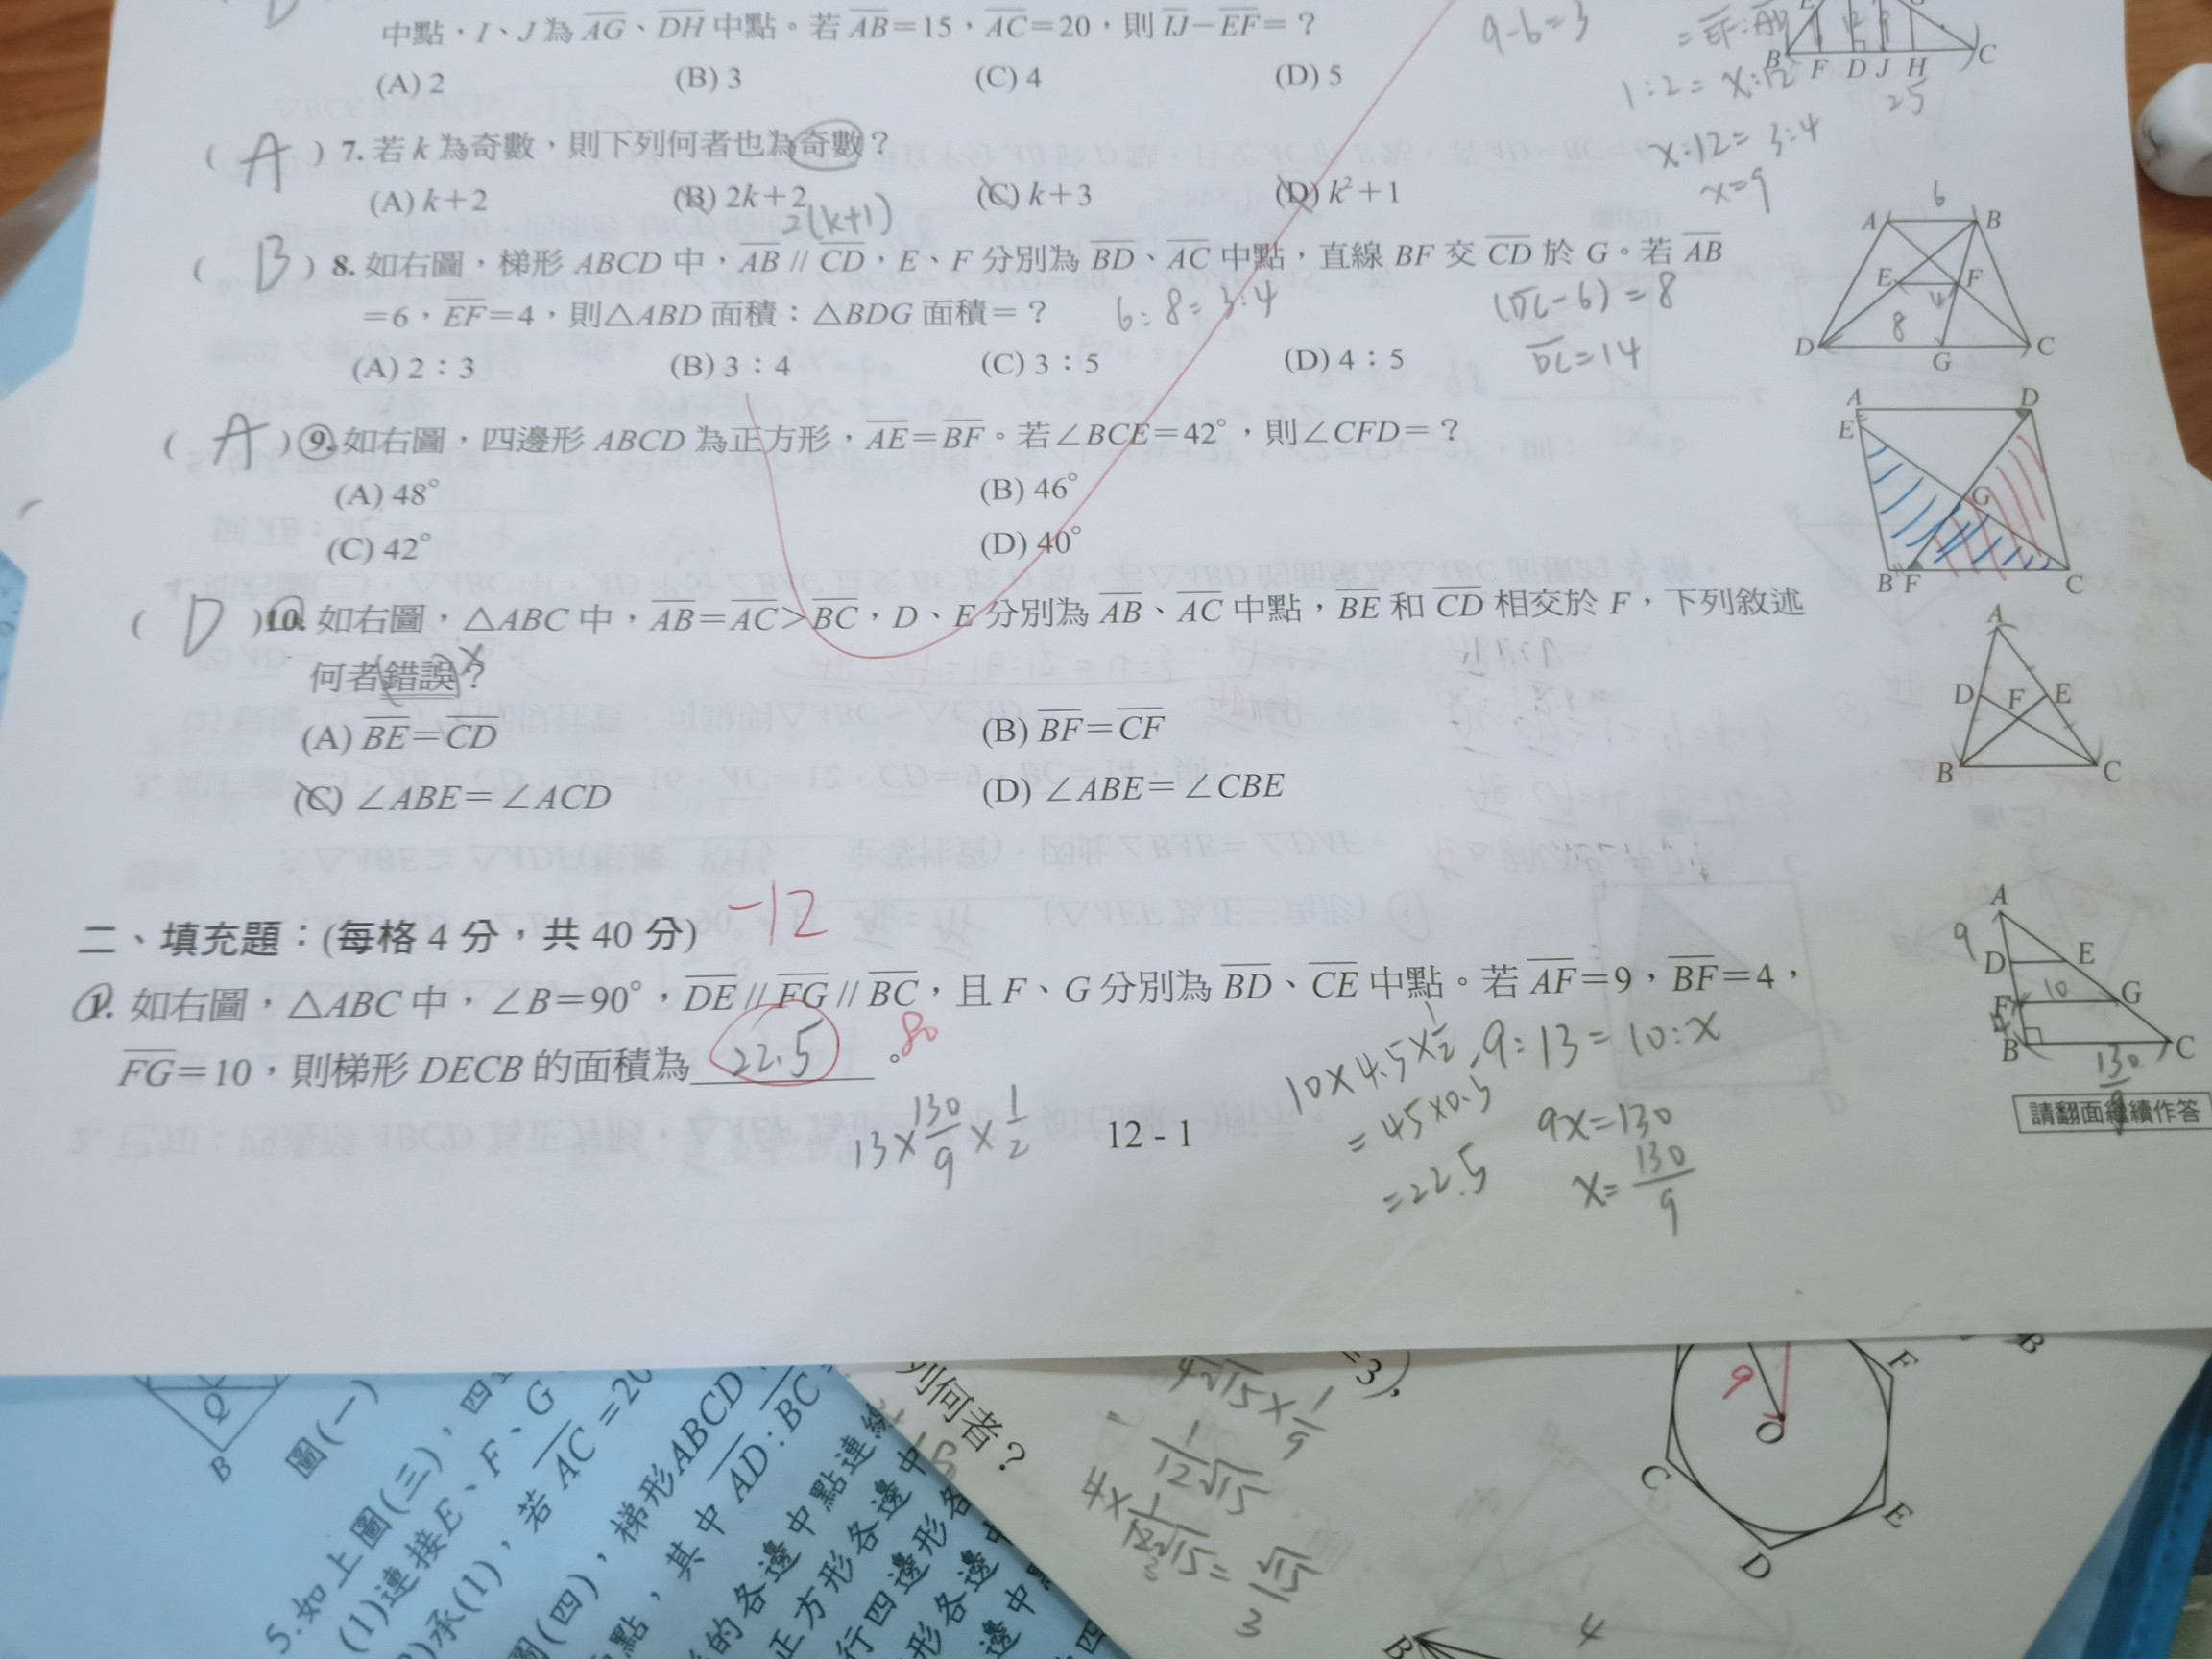 中點，I、J 為 AG、DH 中點。若 AB=15，AC=20，則 IJ－EF=？
(A) 2 (B) 3 (C) 4 (D) 5
9-6=3
=EF:AD
1:2=x:12
x:12=3:4
x=9
B F D J H C
25
( A ) 7. 若 k 為奇數，則下列何者也為奇數？
(A) k+2 (B) 2k+2 (C) k+3 (D) k²+1
2(k+1)
( B ) 8. 如右圖，梯形 ABCD 中，AB // CD，E、F 分別為 BD、AC 中點，直線 BF 交 CD 於 G。若 AB
=6，EF=4，則△ABD 面積：△BDG 面積=？
6:8=3:4
(DC-6)=8
DC=14
(A) 2：3 (B) 3：4 (C) 3：5 (D) 4：5
6
A B
E F
4
8
D G C
( A ) 9. 如右圖，四邊形 ABCD 為正方形，AE=BF。若∠BCE=42°，則∠CFD=？
(A) 48° (B) 46°
(C) 42° (D) 40°
A D
E
G
B F C
( D ) 10. 如右圖，△ABC 中，AB=AC>BC，D、E 分別為 AB、AC 中點，BE 和 CD 相交於 F，下列敘述
何者錯誤？
(A) BE=CD (B) BF=CF
(C) ∠ABE=∠ACD (D) ∠ABE=∠CBE
A
D F E
B C
-12
二、填充題：(每格 4 分，共 40 分)
1. 如右圖，△ABC 中，∠B=90°，DE // FG // BC，且 F、G 分別為 BD、CE 中點。若 AF=9，BF=4，
FG=10，則梯形 DECB 的面積為 22.5 。
80
13×130/9×1/2
10×4.5×1/2
=45×0.5
=22.5
9:13=10:x
9x=130
x=130/9
A
9
D E
F 10 G
4
B C
130/9
12 - 1
請翻面繼續作答
Q
B
圖(一)
5.如上圖(三)，四
(1)連接E、F、G
承(1)，若 AC=20
圖(四)，梯形ABCD
點，其中 AD:BC
的各邊中點連線
正方形各邊中
行四邊形各
形各邊中
邊中點
列何者？
=3)，
4√15×1/9
√15/3
9
O
F
B
C
E
D
B
4